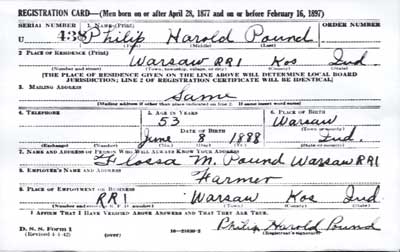 REGISTRATION CARD—(Men born on or after April 28, 1877 and on or before February 16, 1897)
SERIAL NUMBER 1. NAME (Print) ORDER NUMBER
U 438 Philip Harold Pound
(First) (Middle) (Last)
2. PLACE OF RESIDENCE (Print)
Warsaw RR1 Kos Ind.
(Number and street) (Town, township, village, or city) (County) (State)
[THE PLACE OF RESIDENCE GIVEN ON THE LINE ABOVE WILL DETERMINE LOCAL BOARD
JURISDICTION; LINE 2 OF REGISTRATION CERTIFICATE WILL BE IDENTICAL]
3. MAILING ADDRESS
Same
[Mailing address if other than place indicated on line 2. If same insert word same]
4. TELEPHONE 5. AGE IN YEARS 6. PLACE OF BIRTH
53 Warsaw
DATE OF BIRTH (Town or county)
June 8 1888 Ind.
(Exchange) (Number) (Mo.) (Day) (Yr.) (State or country)
7. NAME AND ADDRESS OF PERSON WHO WILL ALWAYS KNOW YOUR ADDRESS
Flossa M. Pound Warsaw RR1
8. EMPLOYER'S NAME AND ADDRESS
Farmer
9. PLACE OF EMPLOYMENT OR BUSINESS
RR1 Warsaw Kos Ind
(Number and street or R. F. D. number) (Town) (County) (State)
I AFFIRM THAT I HAVE VERIFIED ABOVE ANSWERS AND THAT THEY ARE TRUE.
D. S. S. Form 1
(Revised 4-1-42) (over) Philip Harold Pound
(Registrant's signature)